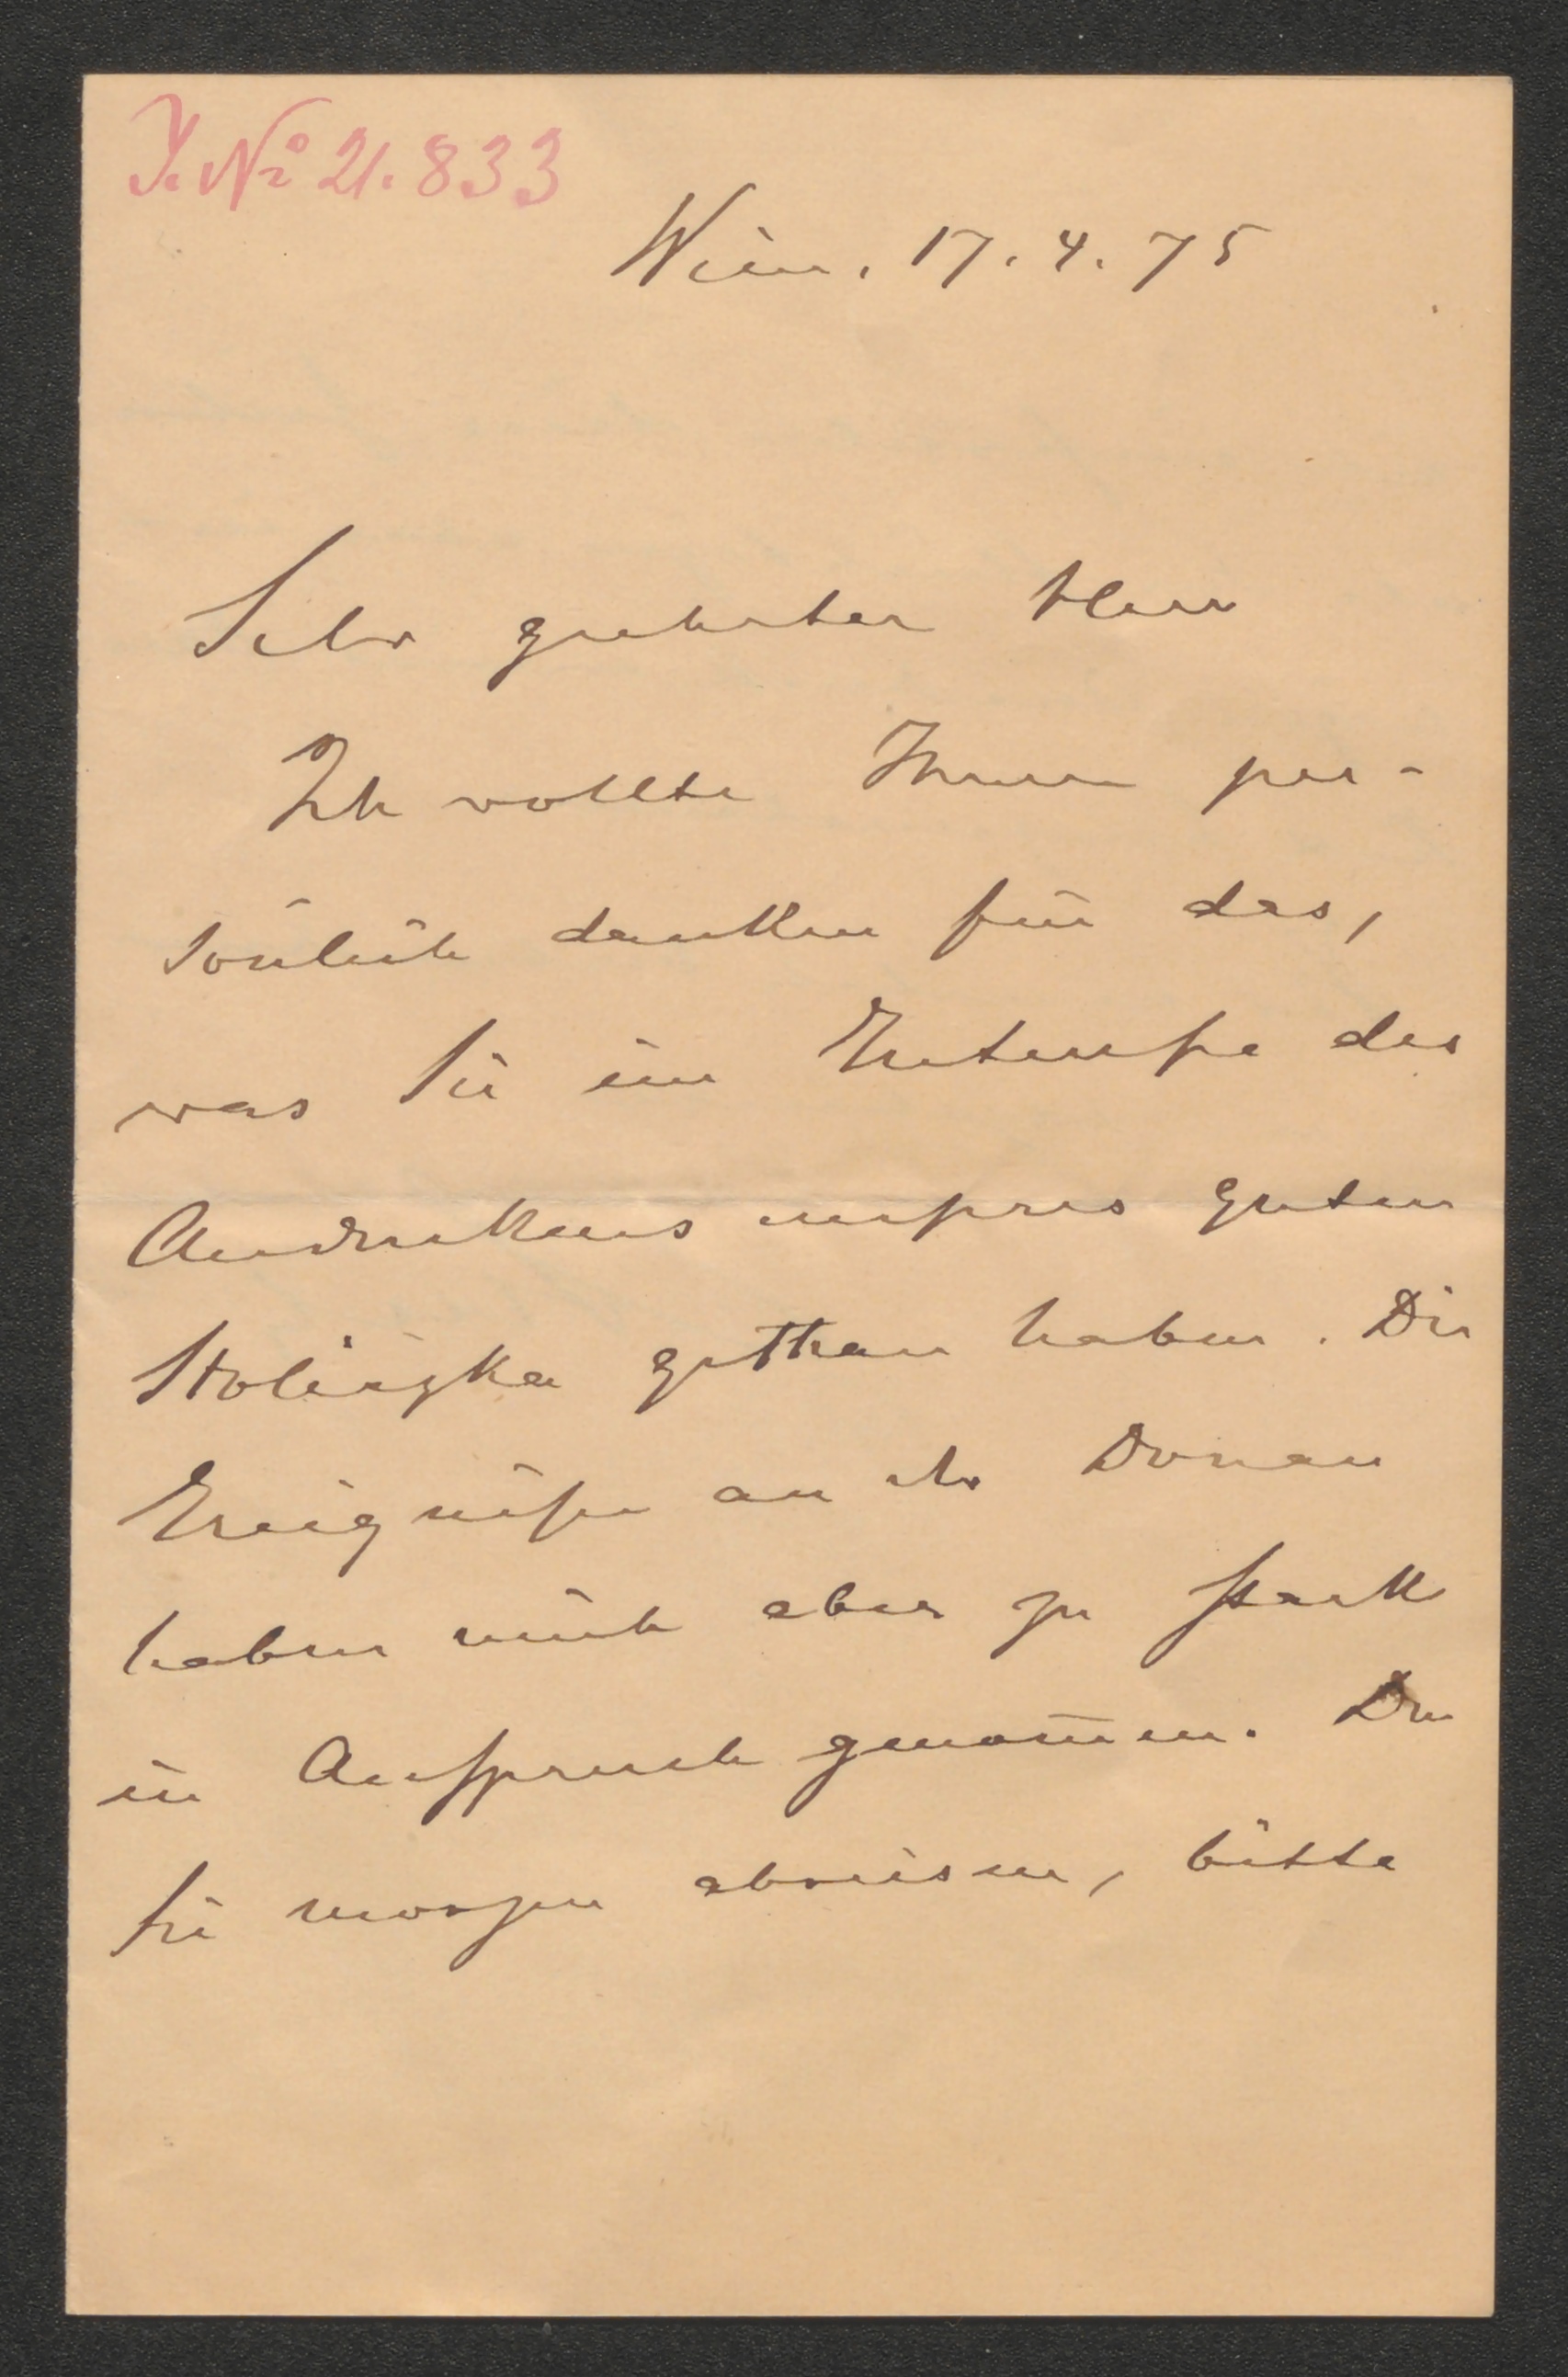 J. No 21.833
Wien, 17.4.75
Sehr geehrter Herr
Ich wollte Ihnen per-
sönlich danken für das,
was Sie im Interesse des
Andenkens unseres guten
Stoliczka gethan haben. Die
Ereignisse an der Donau
haben mich aber zu stark
in Anspruch genom̅en. Da
Sie morgen abreisen, bitte